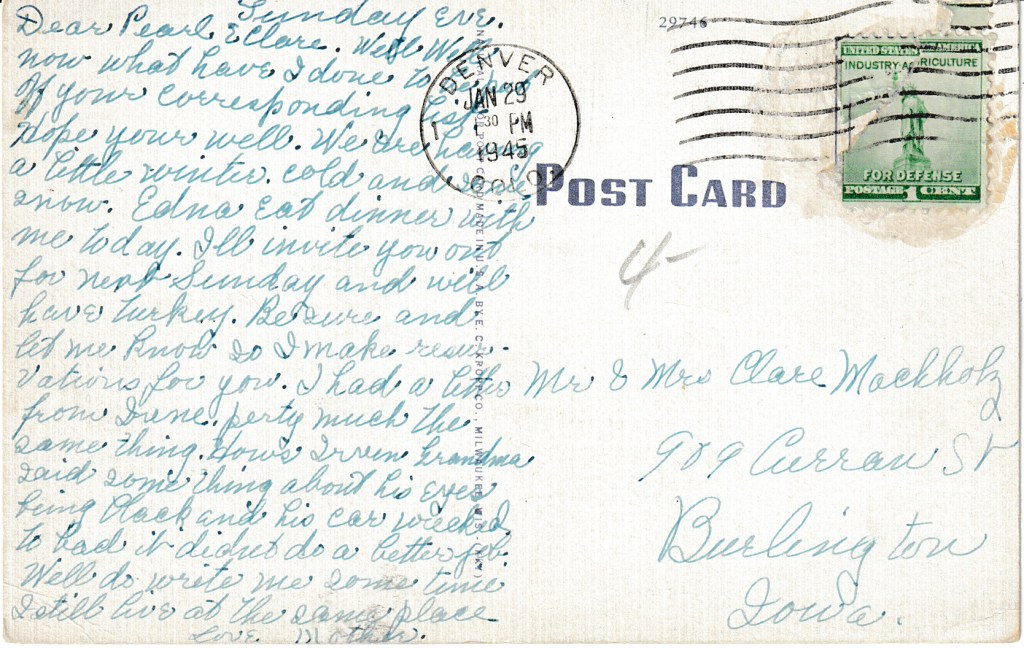 Sunday Eve.
Dear Pearl & Clare. Well Well
now what have I done to be
of your corresponding list
Hope your well. We are having
a little winter. cold and some
snow. Edna Eat dinner with
me today. I'll invite you out
for next Sunday and will
have turkey. Be sure and
let me know so I make reser-
vations for you. I had a letter
from Irene. perty much the
same thing. Hows Irven Grandma
said some thing about his Eyes
being Black and his car wrecked
to bad it didnt do a better job.
Well do write me some time
I still live at the same place
Love. Mother.
29746
DENVER
JAN 29
1 30 PM
1945
COLO
UNITED STATES AMERICA
INDUSTRY AGRICULTURE
FOR DEFENSE
POSTAGE 1 CENT
POST CARD
4-
Mr & Mrs Clare Mackholz
909 Curran St
Burlington
Iowa.
MADE IN U.S.A. BY E. C. KROPP CO., MILWAUKEE, WIS.